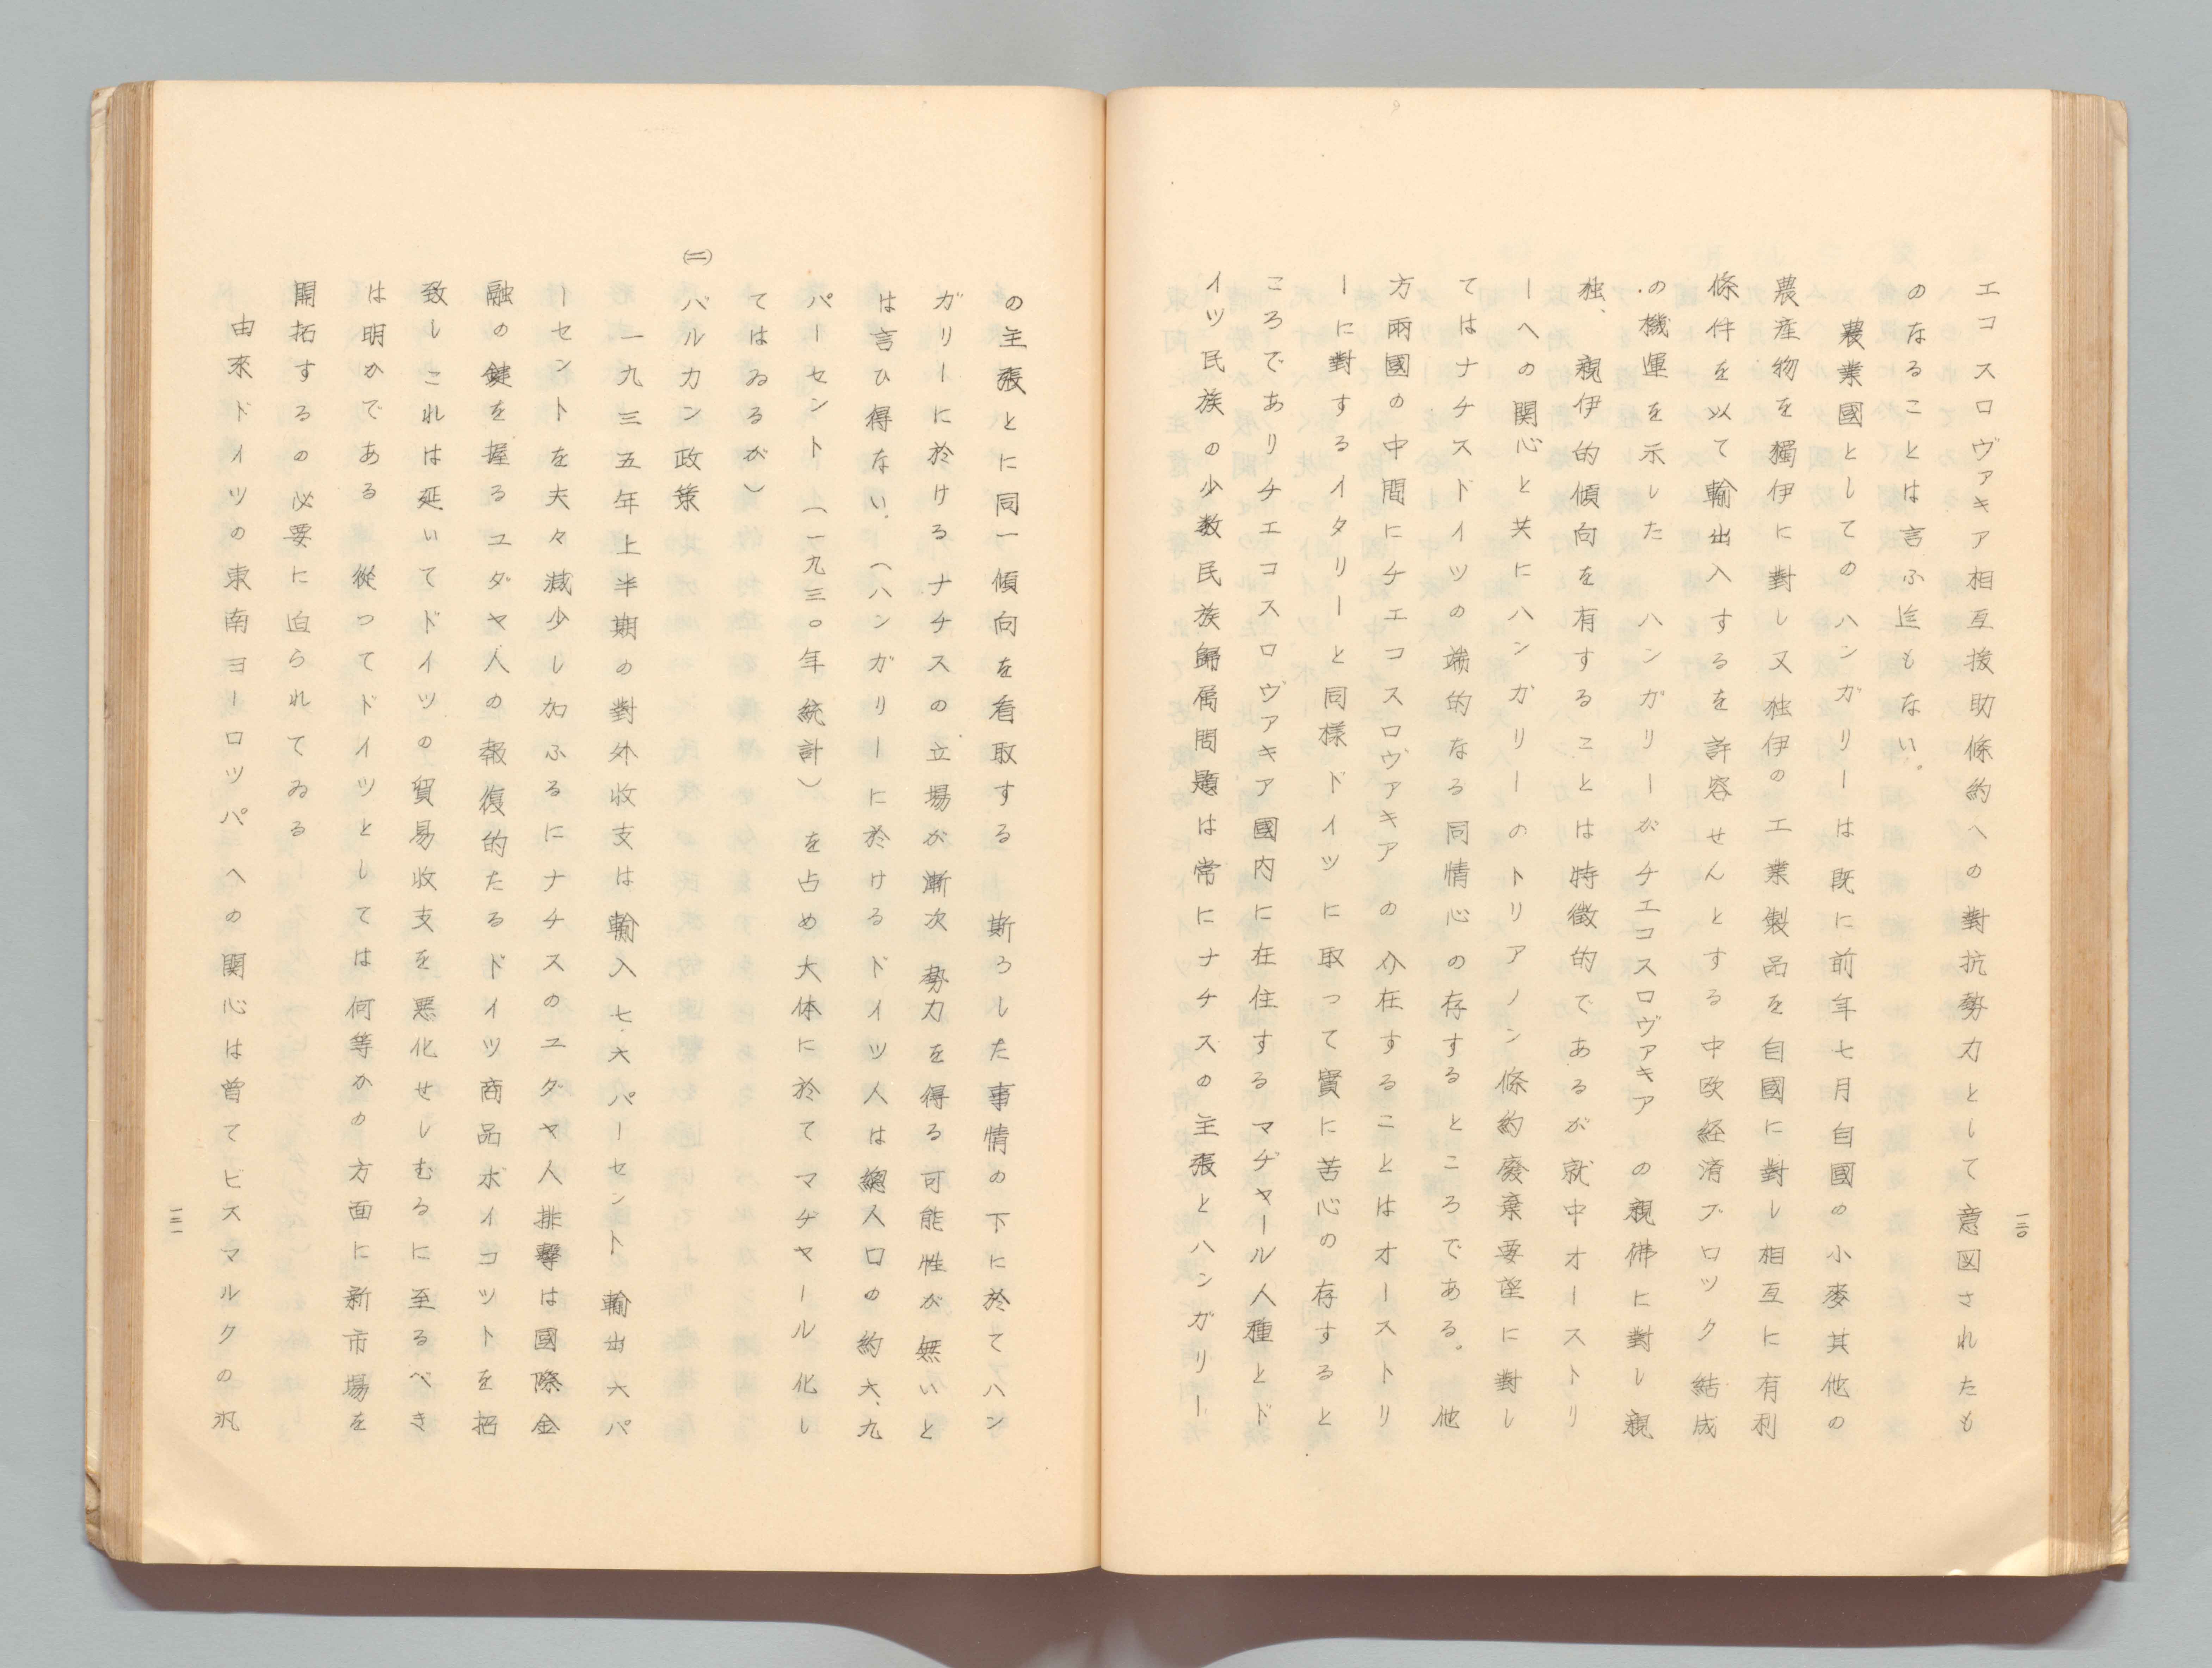 一三〇
エコスロヴァキア相互援助條約への對抗勢力として意図されたも
のなることは言ふ迄もない。
農業國としてのハンガリーは既に前年七月自國の小麥其他の
農産物を獨伊に對し又独伊の工業製品を自國に對し相互に有利
條件を以て輸出入するを許容せんとする中欧経済ブロック結成
の機運を示した　ハンガリーがチエコスロヴァキアの親佛に對し親
独、親伊的傾向を有することは特徴的であるが就中オーストリ
ーへの関心と共にハンガリーのトリアノン條約廢棄要望に對し
てはナチスドイツの端的なる同情心の存するところである。他
方兩國の中間にチエコスロヴァキアの介在することはオーストリ
ーに對するイタリーと同様ドイツに取って實に苦心の存すると
ころでありチエコスロヴァキア國内に在住するマヂャール人種とド
イツ民族の少数民族歸属問題は常にナチスの主張とハンガリー
の主張とに同一傾向を看取する　斯うした事情の下に於てハン
ガリーに於けるナチスの立場が漸次勢力を得る可能性が無いと
は言ひ得ない、（ハンガリーに於けるドイツ人は總人口の約六、九
パーセント（一九三〇年統計）を占め大体に於てマヂャール化し
てはゐるが）
㈡
バルカン政策
一九三五年上半期の對外收支は輸入七.六パーセント　輸出六パ
ーセントを夫々減少し加ふるにナチスのユダヤ人排撃は國際金
融の鍵を握るユダヤ人の報復的たるドイツ商品ボイコットを招
致しこれは延いてドイツの貿易收支を悪化せしむるに至るべき
は明かである　從つてドイツとしては何等かの方面に新市場を
開拓するの必要に迫られてゐる
由來ドイツの東南ヨーロッパへの関心は曽てビスマルクの汎
一三一